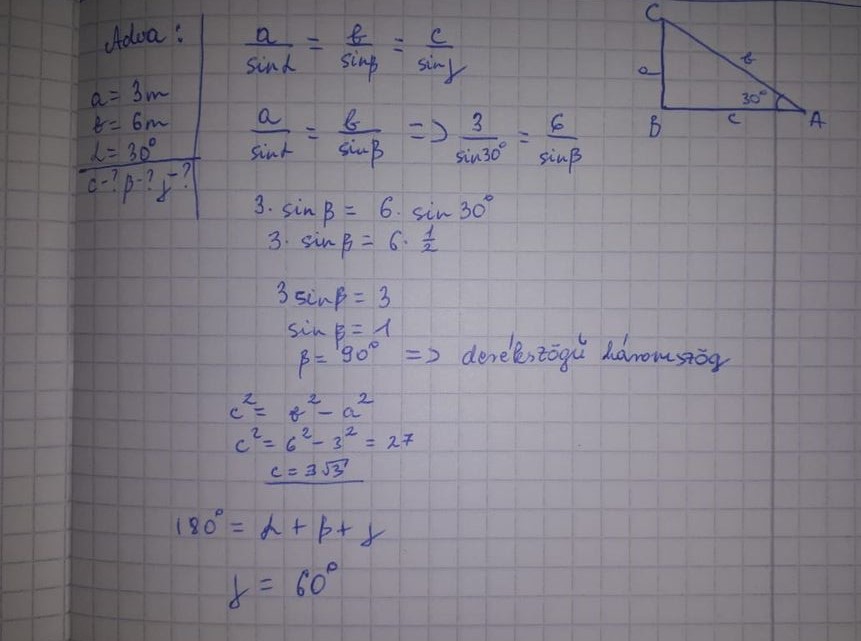 Adva:
a = 3m
b = 6m
α = 30°
c-? β-? γ-?
a/sinα = b/sinβ = c/sinγ
a/sinα = b/sinβ => 3/sin30° = 6/sinβ
3 · sinβ = 6 · sin30°
3 · sinβ = 6 · 1/2
3 sinβ = 3
sinβ = 1
β = 90° => derékszögű háromszög
c² = b² - a²
c² = 6² - 3² = 27
c = 3√3
180° = α + β + γ
γ = 60°
C
a
b
30°
B
c
A